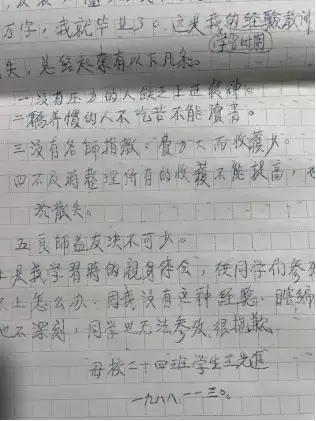 万字，我就毕业了。这是我的经验教训
学习时间
失，总结起来有以下几条。
一没有压力的人缺乏上进精神。
二骄养惯的人不吃苦不能读书。
三没有名师指教。费力大而收获少。
四不及时整理所有的收获不能提高，也
会散失。
五良师益友决不可少。
上是我学习时的亲身体会，供同学们参
上怎么办．因我没有这种经验．瞎编
也不深刻，同学也无法参考，很抱歉。
母校二十四班学生王光
一九八八.一一.三〇.